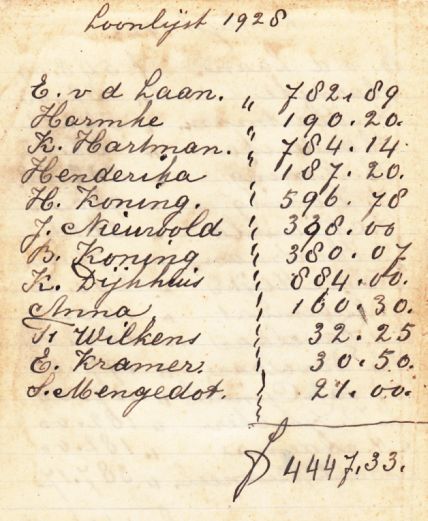 Loonlijst 1928
E. v d Laan. " 782.89
Harmke " 190.20.
K. Hartman. " 784.14
Henderika " 187.20.
H. Koning. " 596.78
J. Nieuwold " 398.00
B. Koning " 380.07
K. Dijkhuis " 884.00.
Anna " 160.30.
Wilkens " 32.25
E. Kramer. " 30.50.
S. Mengedot. " 21.00.
ƒ 4447.33.